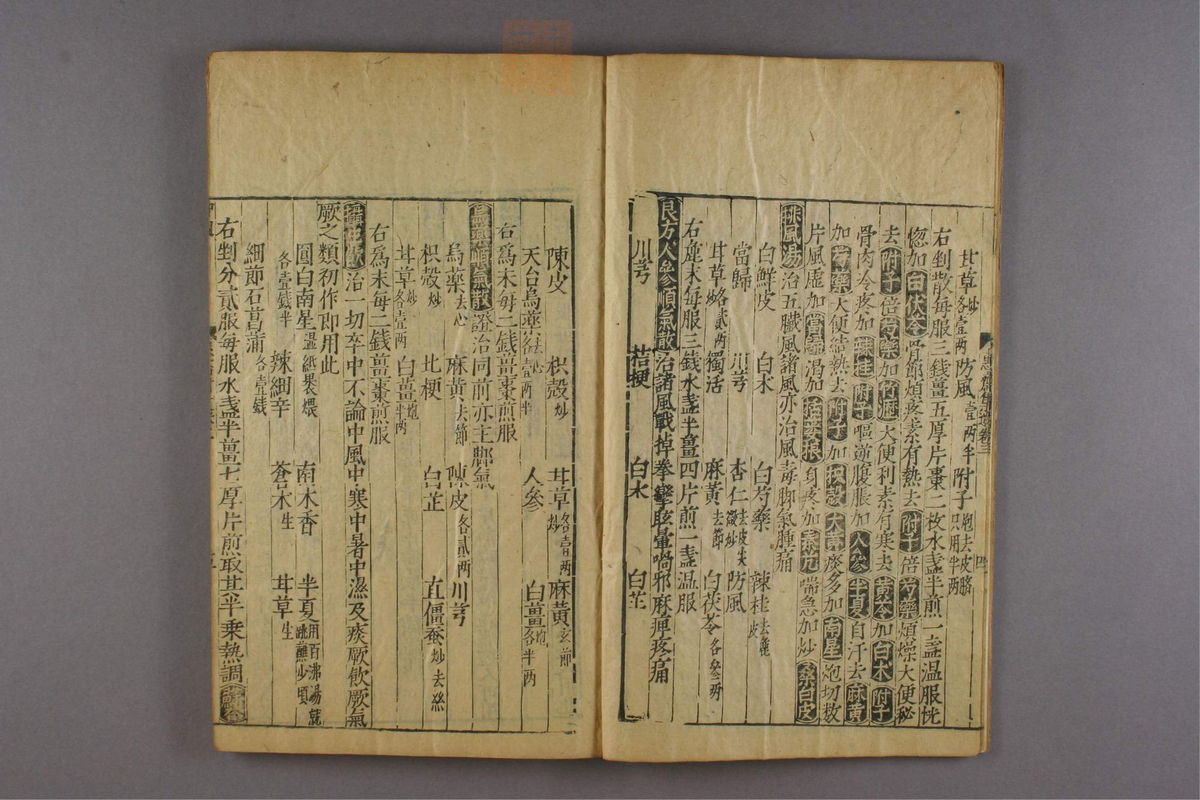 甘草炒各壹两 防風壹两半 附子炮去皮臍只用半两
右剉散每服三錢薑五厚片棗二枚水盞半煎一盞温服恍
惚加白伏苓骨節煩疼素有熱去附子倍芍藥煩燥大便秘
去附子倍芍藥加竹瀝大便利素有寒去黄芩加白术附子
骨肉冷疼加辣桂附子嘔逆腹脹加人參半夏自汗去麻黄
加芍藥大便結熱去附子加枳殼大黄痰多加南星炮切数
片風虚加當歸渴加括蔞根身疼加秦艽喘急加炒桑白皮
排風湯治五臓風諸風亦治風毒脚氣腫痛
白鮮皮 白术 白芍藥 辣桂去麁皮
當歸 川芎 杏仁去皮尖微炒 防風
甘草炒各貳两 獨活 麻黄去節 白茯苓各叁两
右麁末每服三錢水盞半薑四片煎一盞温服
良方人參順氣散治諸風戰掉拳攣眩暈喎邪麻痺疼痛
川芎 桔梗 白术 白芷
陳皮 枳殼炒 甘草炒各壹两 麻黄去節
天台烏藥去心各壹两半 人參 白薑炮各半两
右爲末每二錢薑棗煎服
烏藥順氣散證治同前亦主脚氣
烏藥去心 麻黄去節 陳皮各貳两 川芎
枳殼炒 比梗 白芷 直僵蚕炒去絲
甘草炒各壹两 白薑炮半两
右爲末每二錢薑棗煎服
治一切卒中不論中風中寒中暑中濕及痰厥飲厥氣
厥之類初作即用此
圓白南星濕紙裹煨 南木香 半夏用百沸湯就銚蘸少頃
各壹錢半 辣細辛 蒼术生 甘草生
細節石菖蒲各壹錢
右剉分貳服每服水盞半薑七厚片煎取其半乗熱調